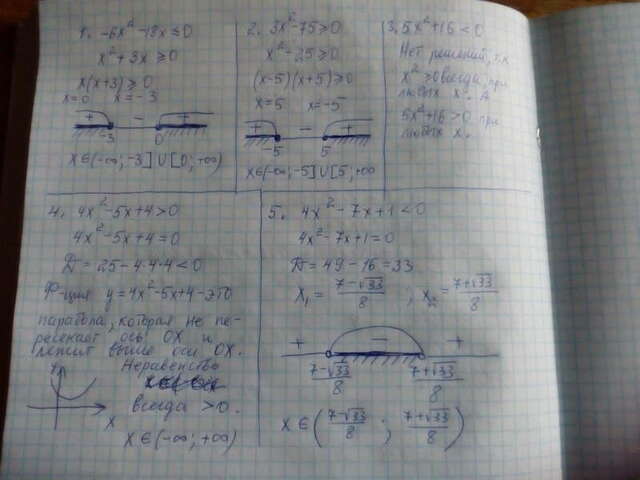 1. -6x²-18x≤0
x²+3x≥0
x(x+3)≥0
x=0 x=-3
+ - +
-3 0
x∈(-∞;-3]∪[0;+∞)
2. 3x²-75≥0
x²-25≥0
(x-5)(x+5)≥0
x=5 x=-5
+ - +
-5 5
x∈(-∞;-5]∪[5;+∞
3. 5x²+16<0
Нет решений, т.к
x²≥0 всегда, при
любых x. А
5x²+16>0 при
любых x.
4. 4x²-5x+4>0
4x²-5x+4=0
D=25-4·4·4<0
Ф-ция y=4x²-5x+4-это
парабола, которая не пе-
ресекает ось OX и
лежит выше оси OX.
Неравенство
всегда >0.
x∈(-∞;+∞)
Y
X
5. 4x²-7x+1<0
4x²-7x+1=0
D=49-16=33
x₁=(7-√33)/8 ; x₂=(7+√33)/8
+ - +
(7-√33)/8 (7+√33)/8
x∈((7-√33)/8 ; (7+√33)/8)